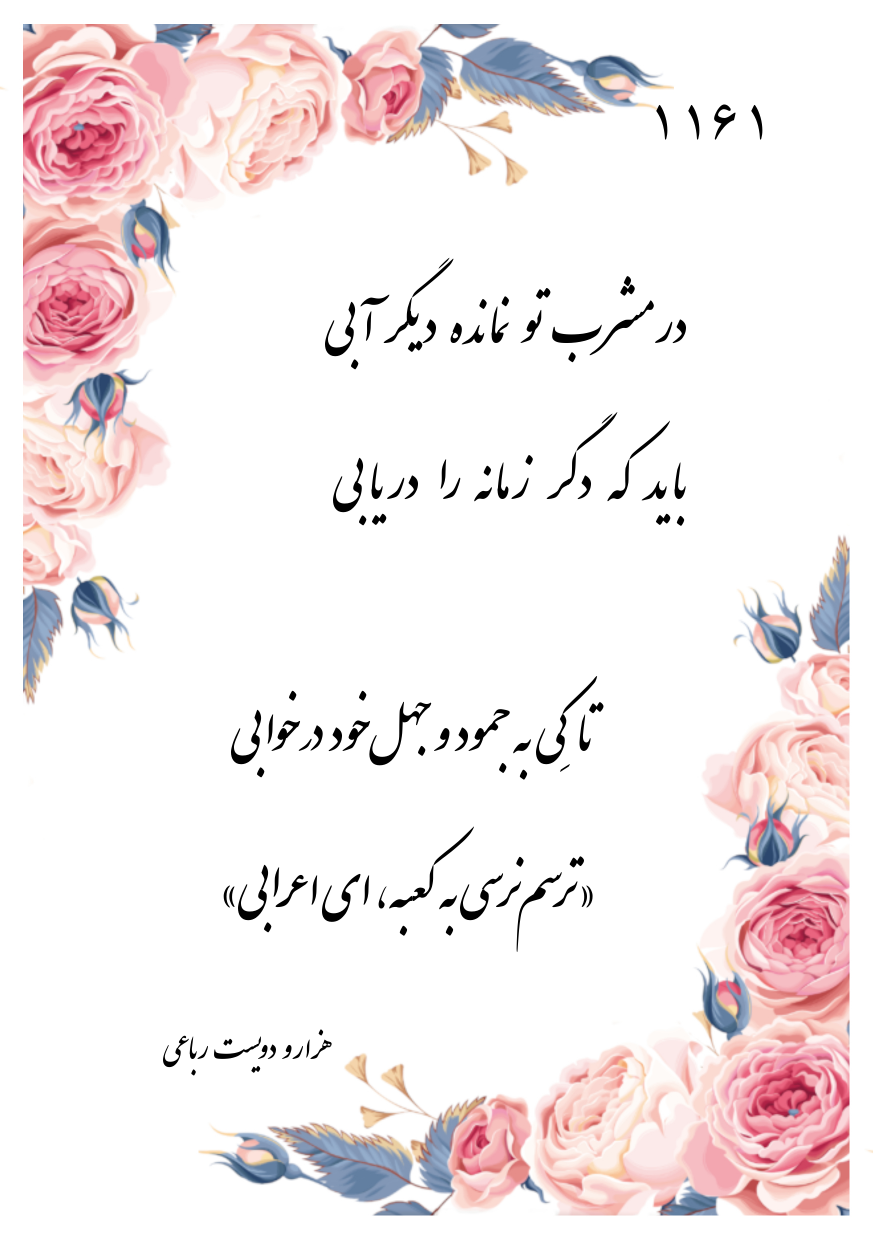 ۱۱۶۱
در مشرب تو نمانده دیگر آبی
باید که دگر زمانه را دریابی
تا کِی به جمود و جهل خود در خوابی
«ترسم نرسی به کعبه، ای اعرابی»
هزار و دویست رباعی